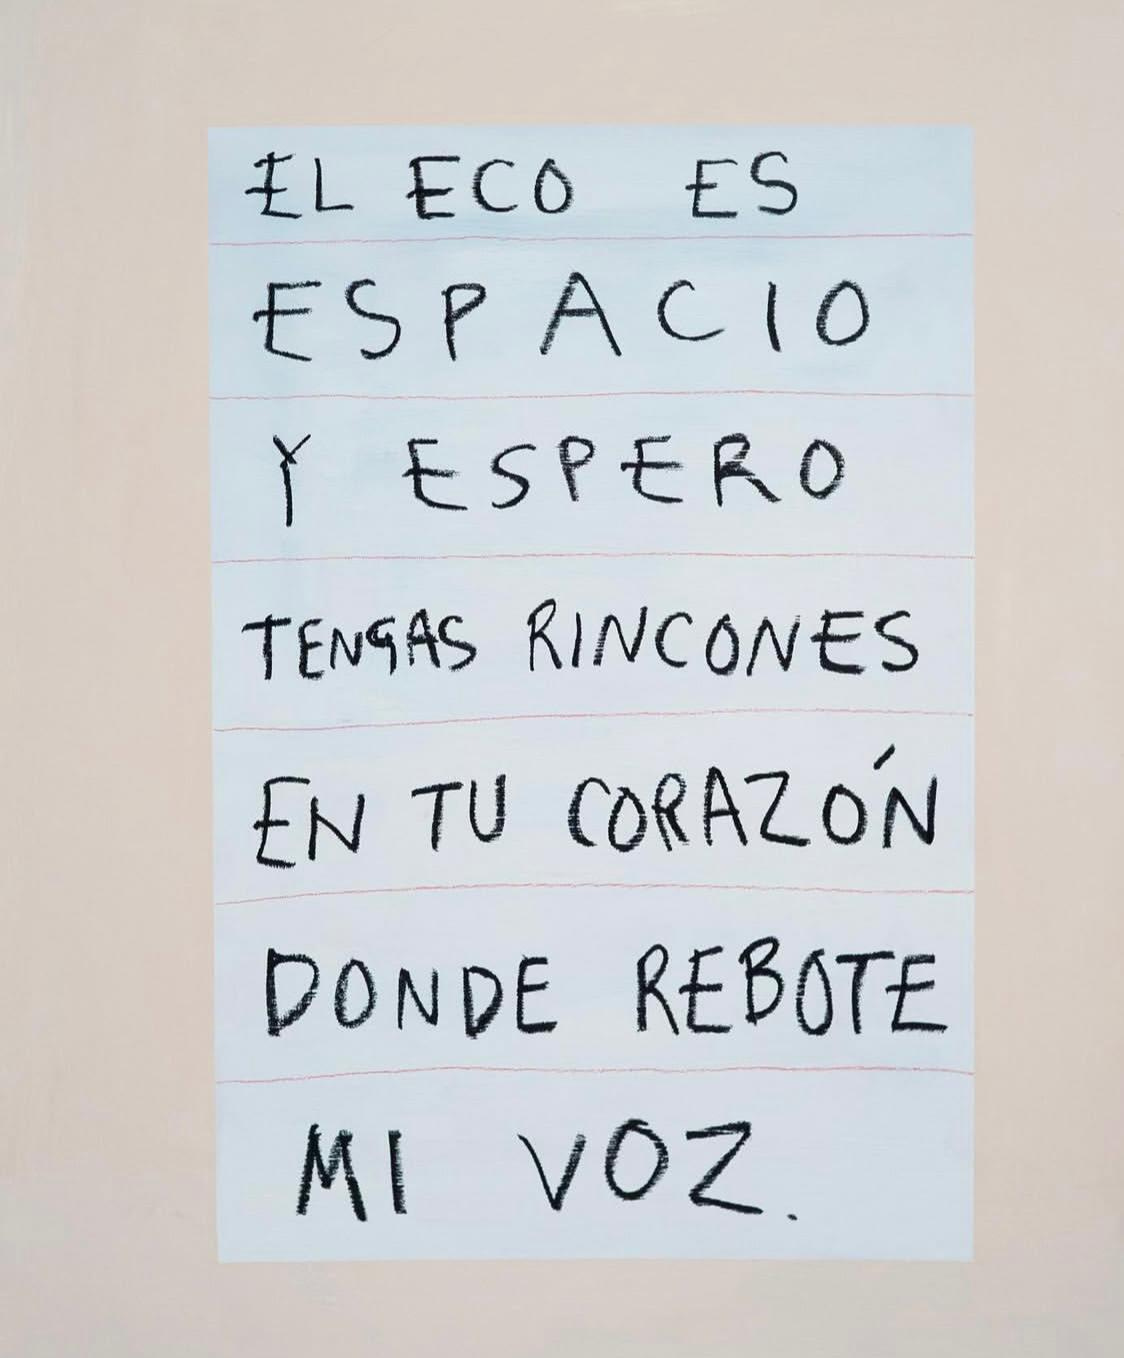 EL ECO ES
ESPACIO
Y ESPERO
TENGAS RINCONES
EN TU CORAZÓN
DONDE REBOTE
MI VOZ.